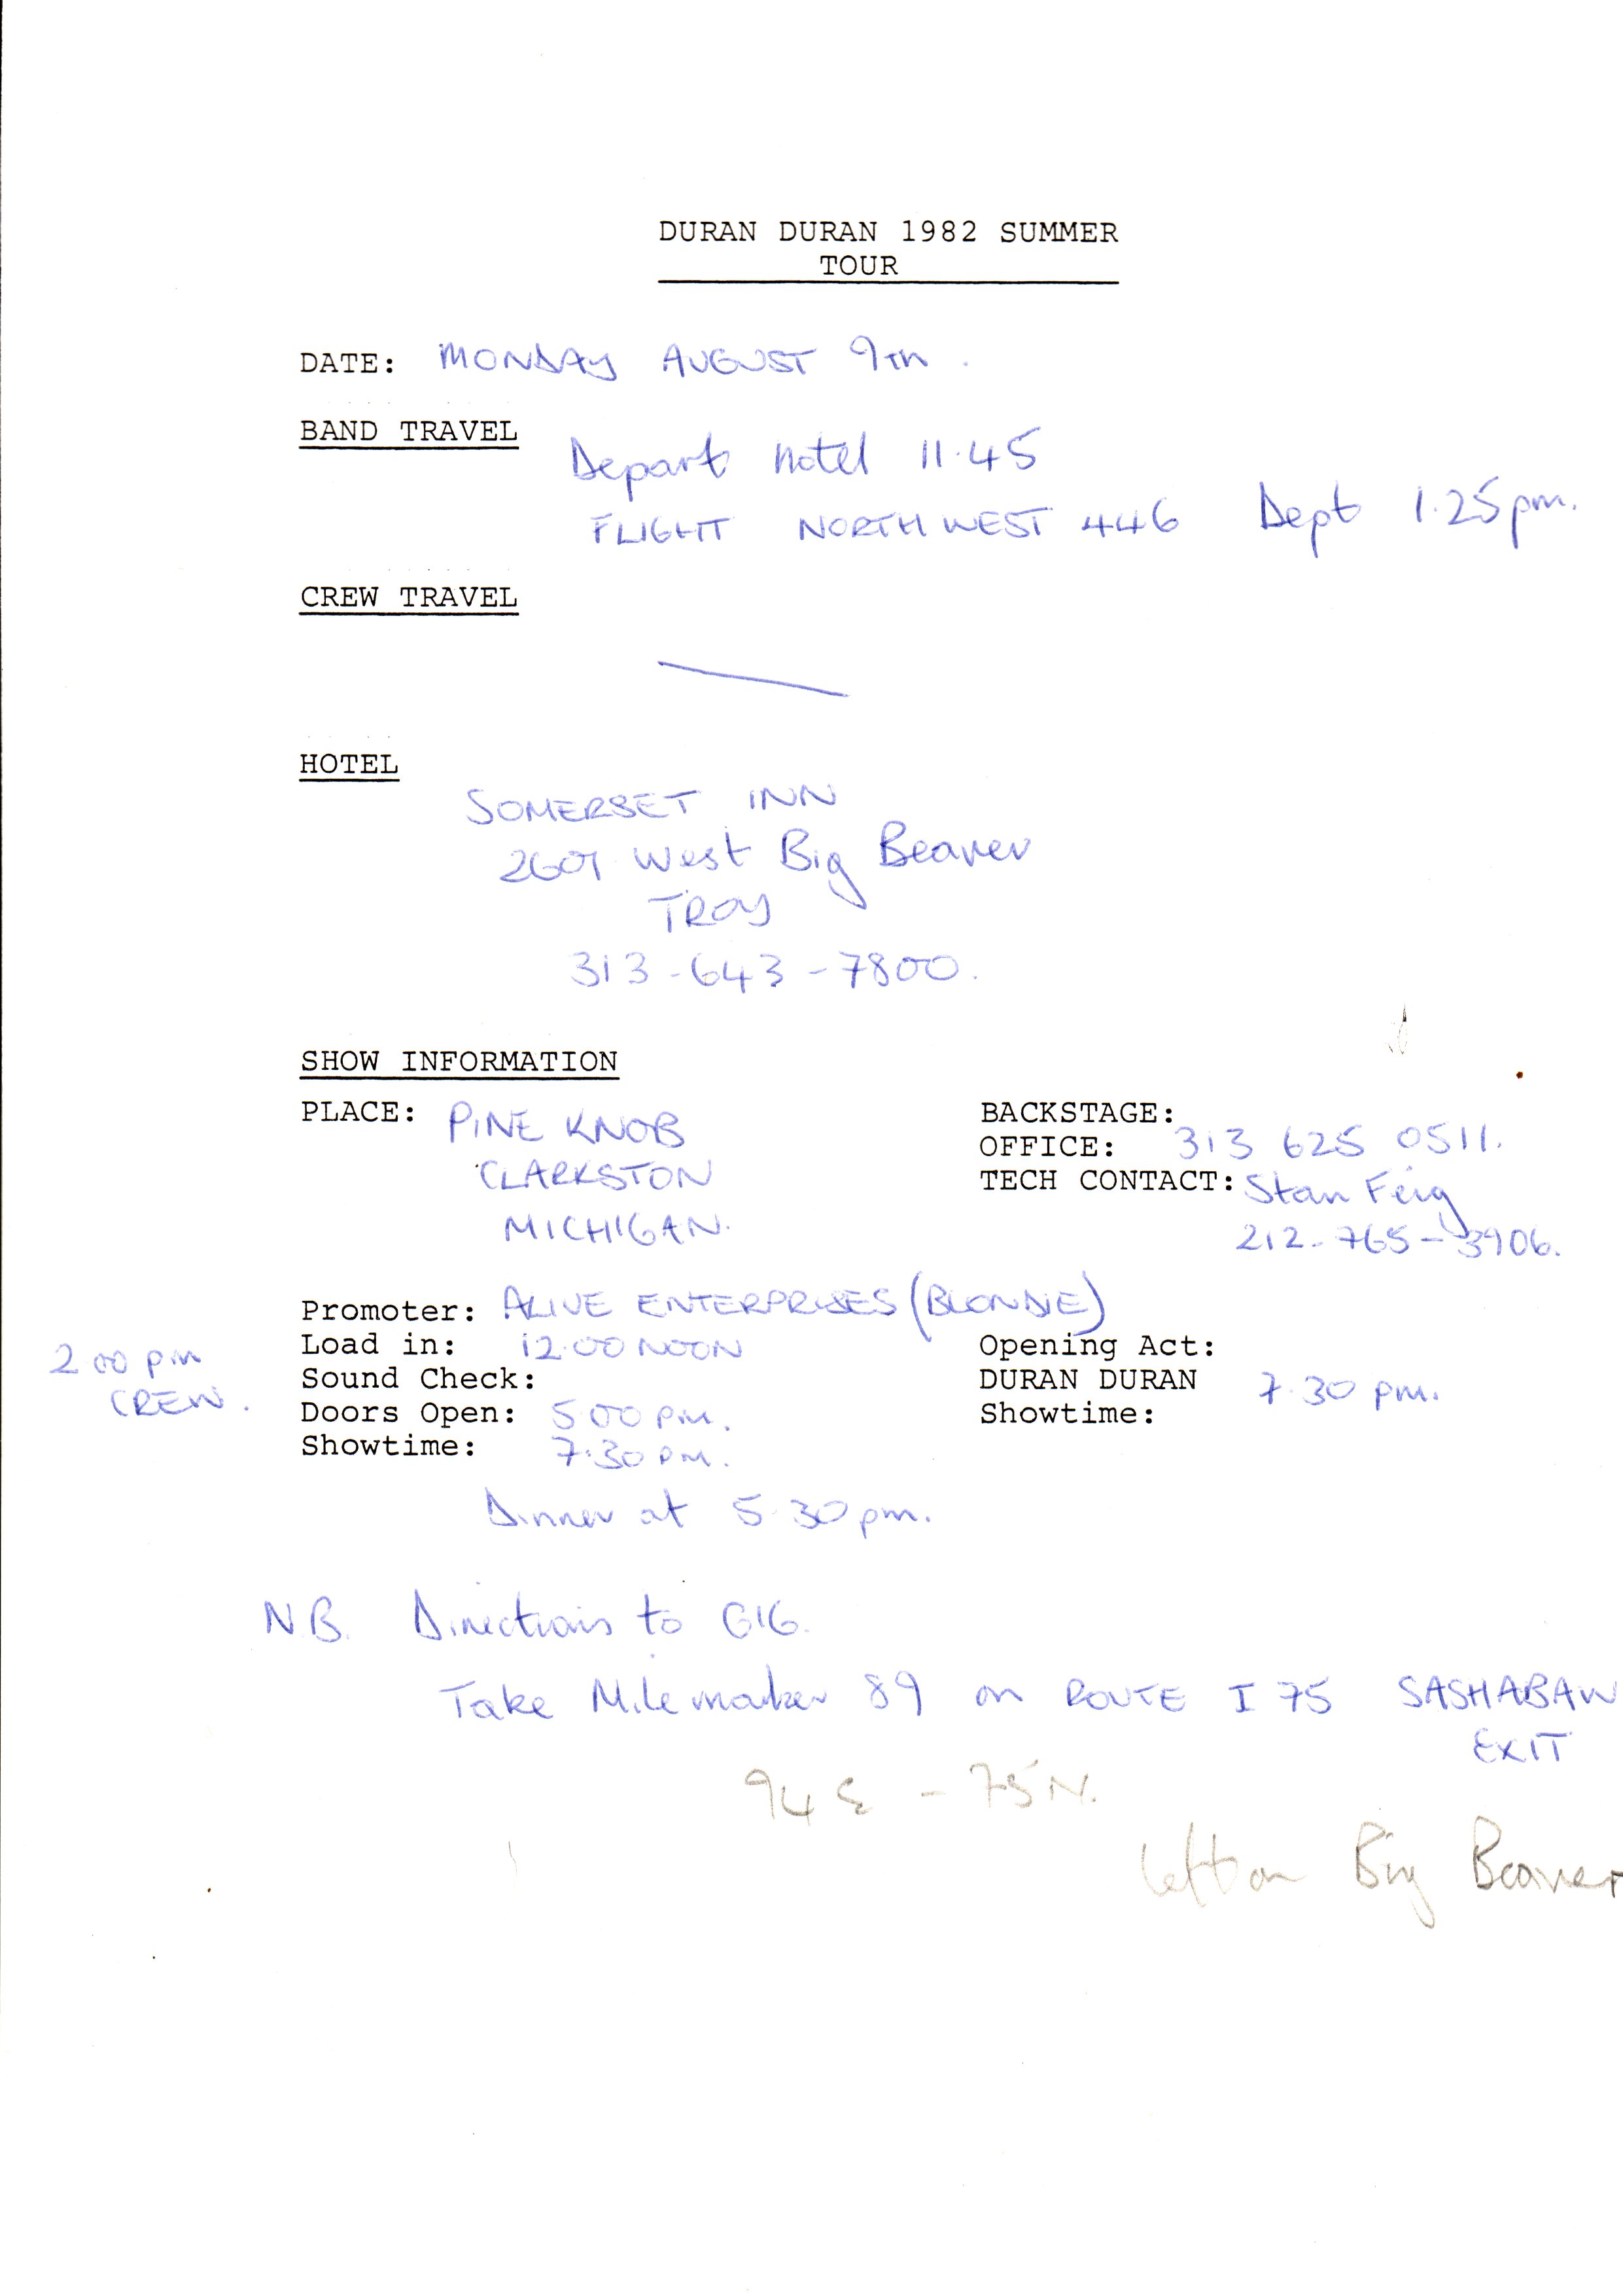 DURAN DURAN 1982 SUMMER
TOUR
DATE: MONDAY AUGUST 9TH.
BAND TRAVEL
Depart Hotel 11.45
FLIGHT NORTHWEST 446 Dept 1.25pm.
CREW TRAVEL
HOTEL
SOMERSET INN
2601 West Big Beaver
TROY
313-643-7800.
SHOW INFORMATION
PLACE: PINE KNOB
CLARKSTON
MICHIGAN.
BACKSTAGE:
OFFICE: 313 625 0511.
TECH CONTACT: Stan Feig
212-765-3906.
Promoter: ALIVE ENTERPRISES (BLONDIE)
Load in: 12.00 NOON
2 00 pm
CREW.
Sound Check:
Doors Open: 5 00 pm.
Showtime: 7.30 pm.
Opening Act:
DURAN DURAN 7.30 pm.
Showtime:
Dinner at 5 30 pm.
N.B. Directions to GIG.
Take Mile marker 89 on ROUTE I 75 SASHABAW
EXIT
94 E - 75 N.
left on Big Beaver